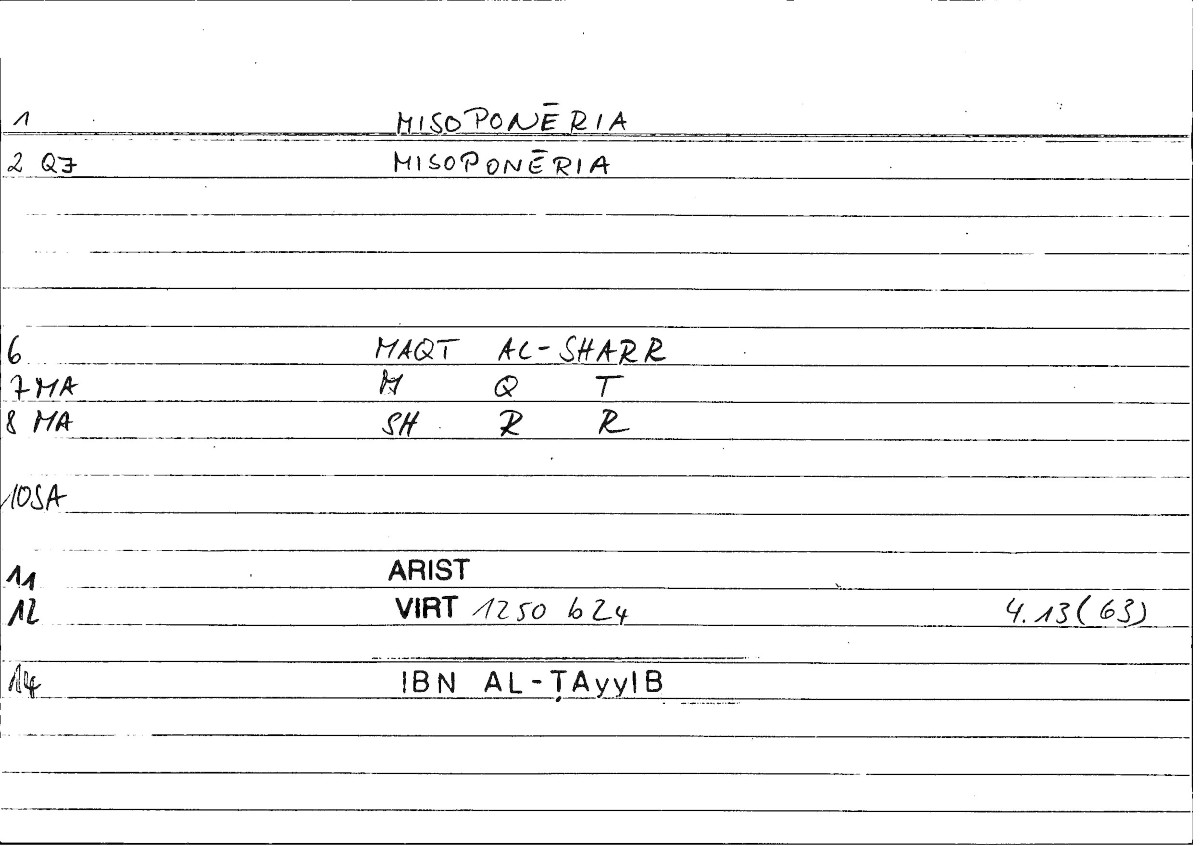 1 MISOPONĒRIA
2 QJ MISOPONĒRIA
6 MAQT AL-SHARR
7 MA M Q T
8 MA SH R R
10 SA
11 ARIST
12 VIRT 1250 b 24 4.13(63)
14 IBN AL-ṬAyyIB